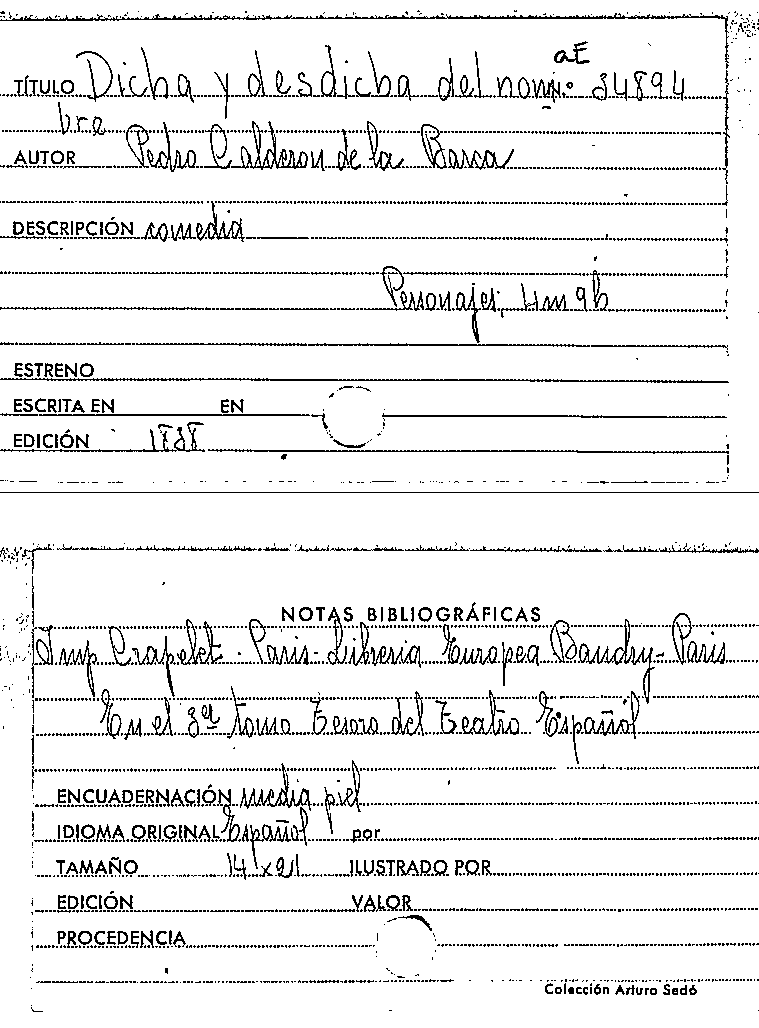 aE
TÍTULO Dicha y desdicha del nom N.º 34894
bre
AUTOR Pedro Calderon de la Barca
DESCRIPCIÓN comedia
Personajes; 4m 9h
ESTRENO
ESCRITA EN EN
EDICIÓN 1838
NOTAS BIBLIOGRÁFICAS
Imp Crapelet - Paris - Libreria Europea Baudry - Paris
En el 3er tomo Tesoro del Teatro Español
ENCUADERNACIÓN media piel
IDIOMA ORIGINAL Español por
TAMAÑO 14 x 21 ILUSTRADO POR
EDICIÓN VALOR
PROCEDENCIA
Colección Arturo Sedó